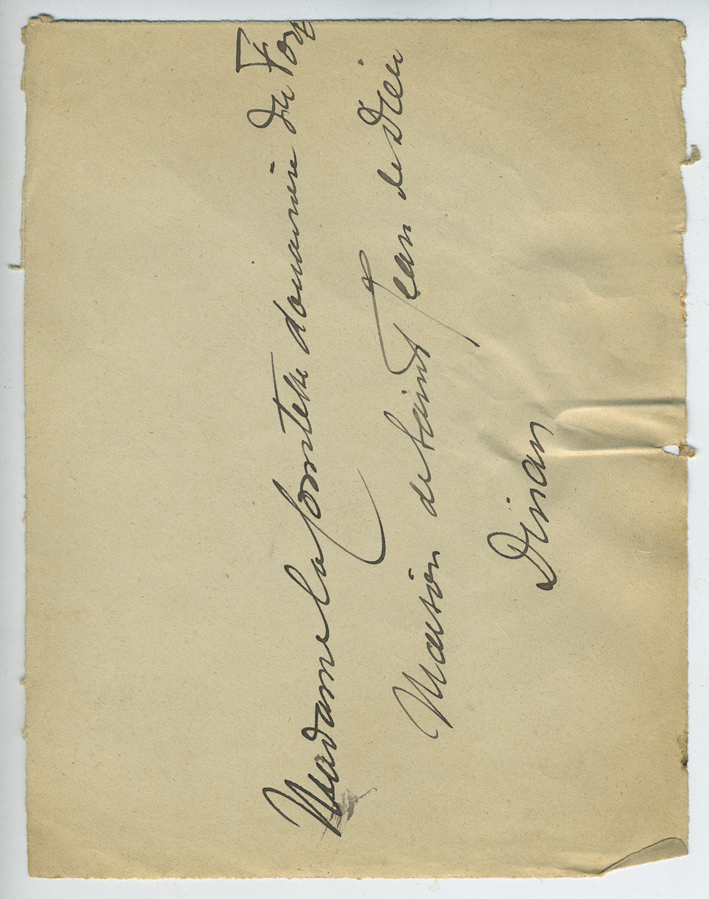 Madame la Comtesse douairière du
Maison de Saint Jean de Dieu
Dinan